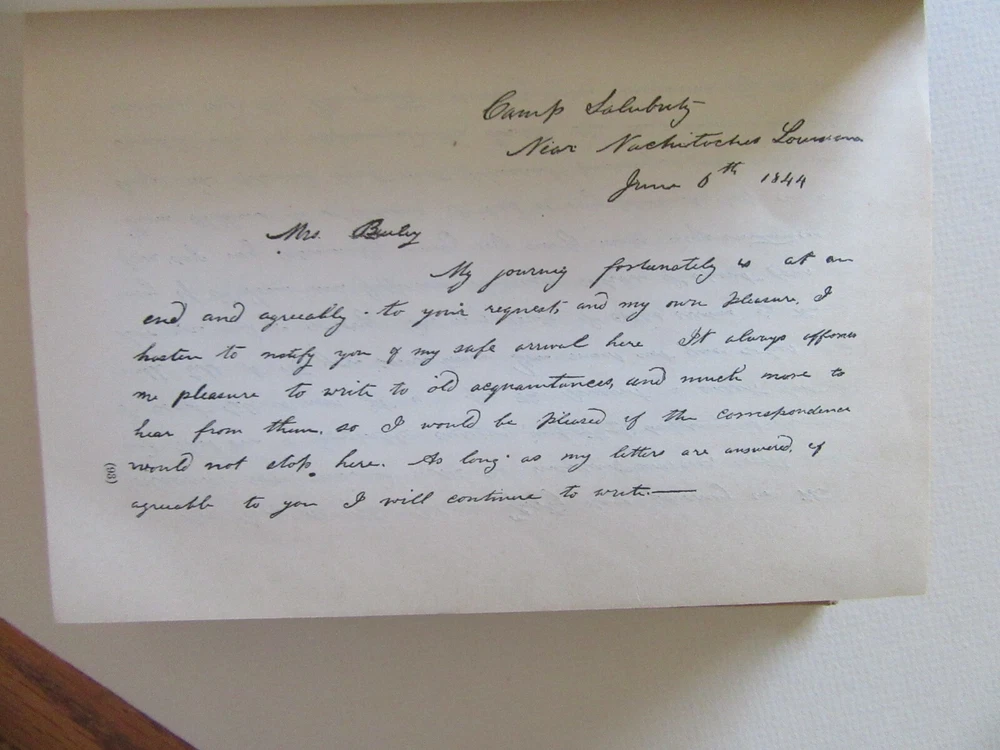 Camp Salubrity
Near Nachitoches Louisiana
June 6th 1844
Mrs. Bailey
My journey fortunately is at an
end, and agreeably to your request, and my own pleasure, I
hasten to notify you of my safe arrival here It always affords
me pleasure to write to old acquaintances, and much more to
hear from them, so I would be pleased if the correspondence
would not stop here. As long as my letters are answered, if
agreeable to you I will continue to write.—
(98)